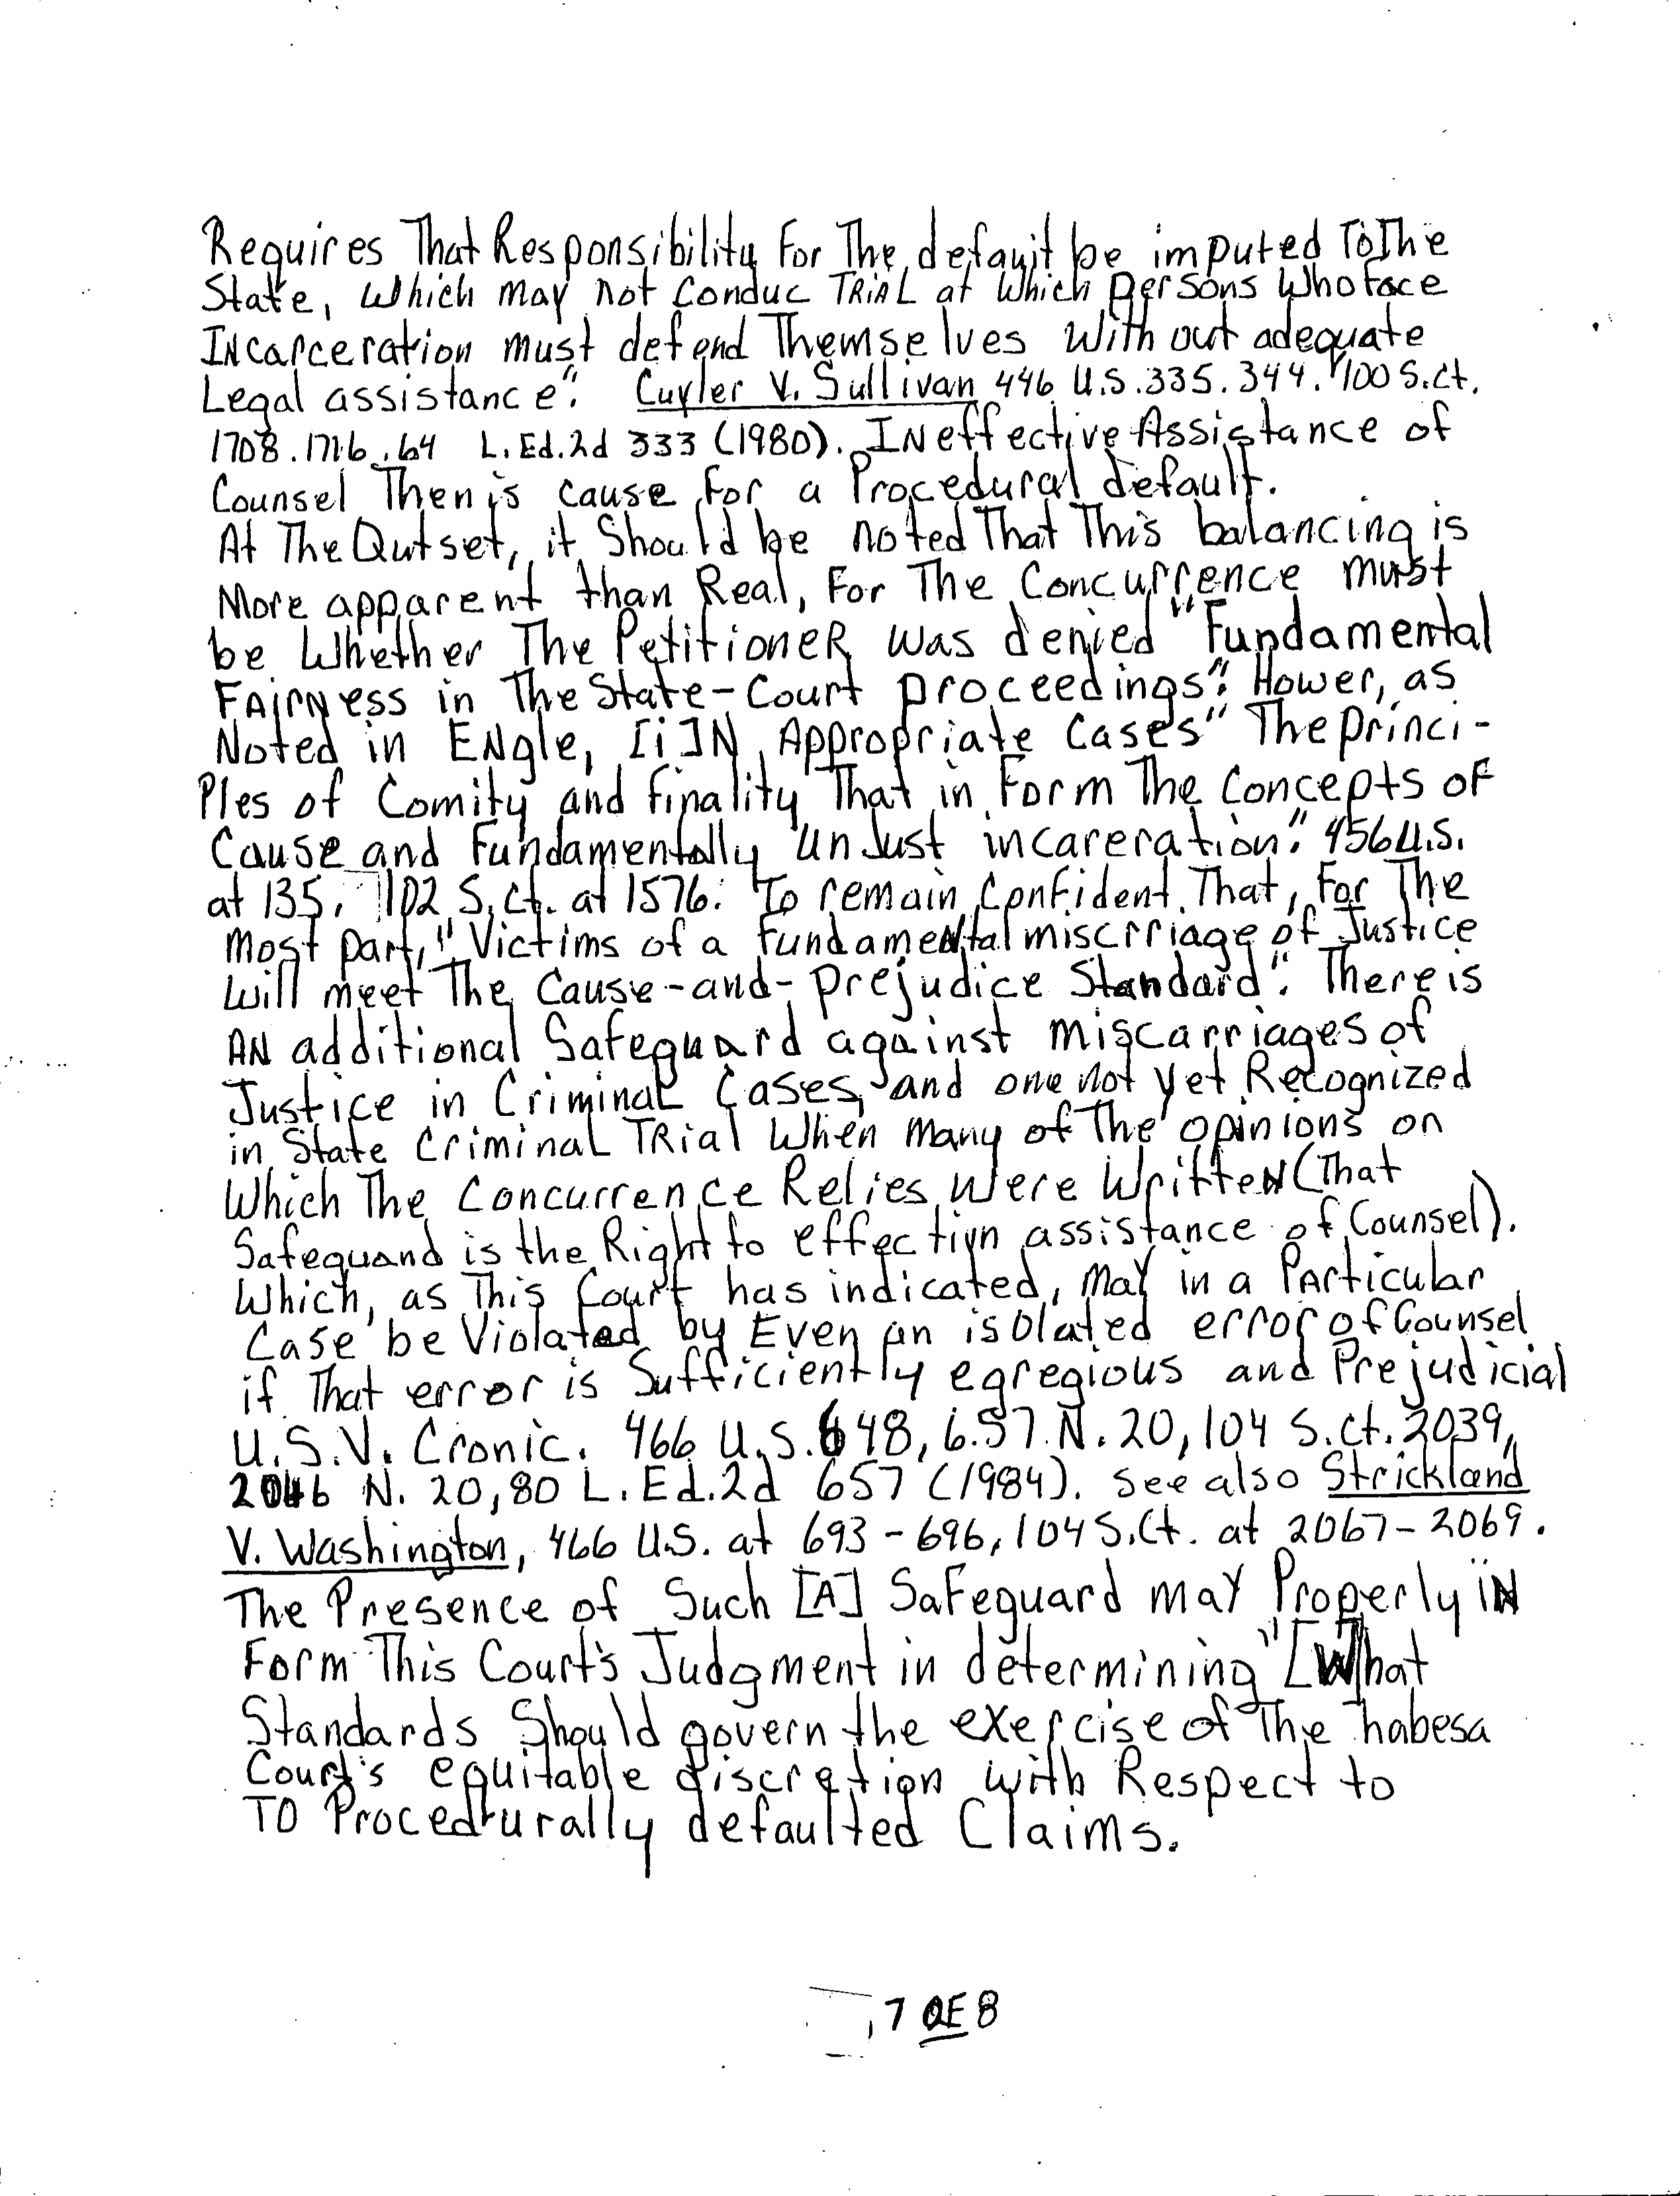 Requires That Responsibility For The default be imputed To The
State, Which may not Conduc TRiAL at Which Persons Who face
INcarceration must defend Themselves With out adequate
Legal assistance". Cuyler V. Sullivan 446 U.S. 335. 344. 100 S.ct.
1708. 1716. 64 L. Ed. 2d 333 (1980). INeffective Assistance of
Counsel Then is cause for a Procedural default.
At The Outset, it Should be noted That This balancing is
More apparent than Real, For The Concurrence must
be Whether The PetitioneR was denied "Fundamental
FAirNess in The State-Court proceedings". Hower, as
Noted in ENgle, [i]N Appropriate Cases" The princi-
Ples of Comity and finality That in Form The Concepts of
Cause and Fundamentally unJust incareration." 456 U.S.
at 135, 102 S.Ct. at 1576. To remain Confident That, For The
most part," Victims of a Fundamental miscrriage of Justice
Will meet The Cause-and-prejudice Standard". There is
AN additional Safeguard against miscarriages of
Justice in CriminaL Cases, and one not yet Recognized
in State CriminaL TRial When Many of The opinions on
Which The Concurrence Relies Were WritteN (That
Safeguand is the Right to effectivn assistance of Counsel).
Which, as This Court has indicated, May in a PArticular
Case be Violated by Even an isolated error of Counsel
if That error is Sufficiently egregious and Prejudicial
U.S.V. Cronic. 466 U.S. 648, 6.57. N. 20, 104 S.ct. 2039,
2046 N. 20, 80 L. Ed. 2d 657 (1984). see also Strickland
V. Washington, 466 U.S. at 693-696, 104 S.Ct. at 2067-2069.
The Presence of Such [A] SaFeguard may Properly iN
Form This Court's Judgment in determining "[W]hat
Standards Should govern the exercise of The habesa
Court's equitable discretion with Respect to
TO Procedurally defaulted Claims.
7 OF 8